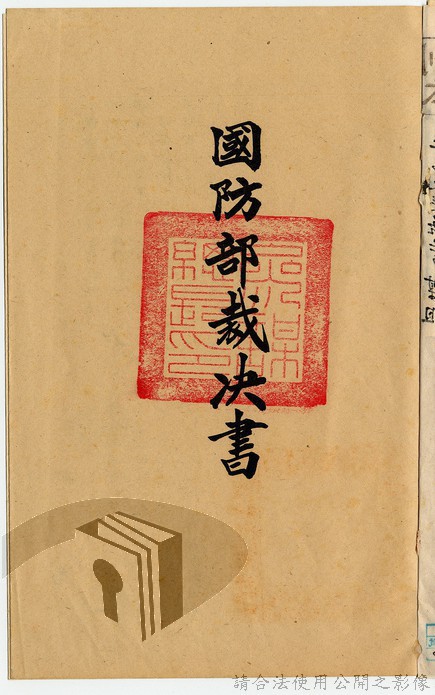 國防部裁决書
請合法使用公開之影像